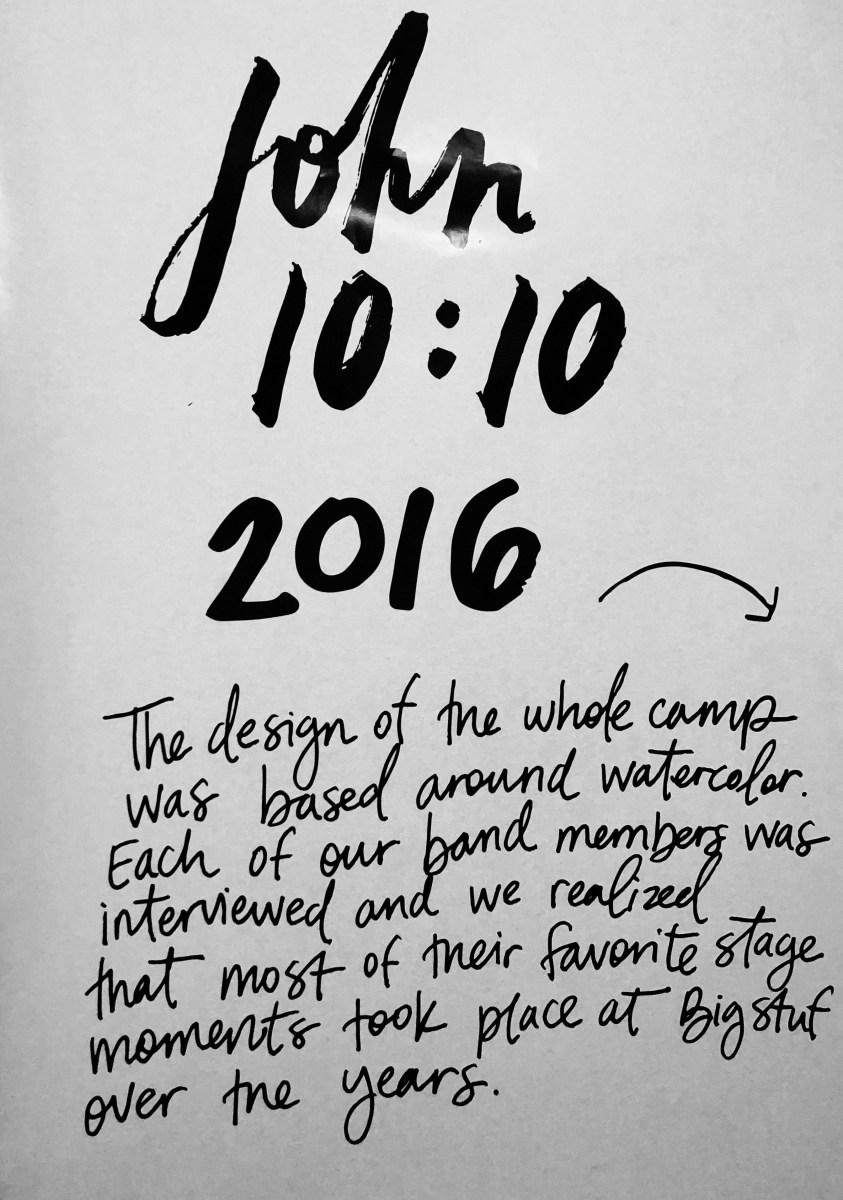 John
10:10
2016
The design of the whole camp
was based around watercolor.
Each of our band members was
interviewed and we realized
that most of their favorite stage
moments took place at Bigstuf
over the years.